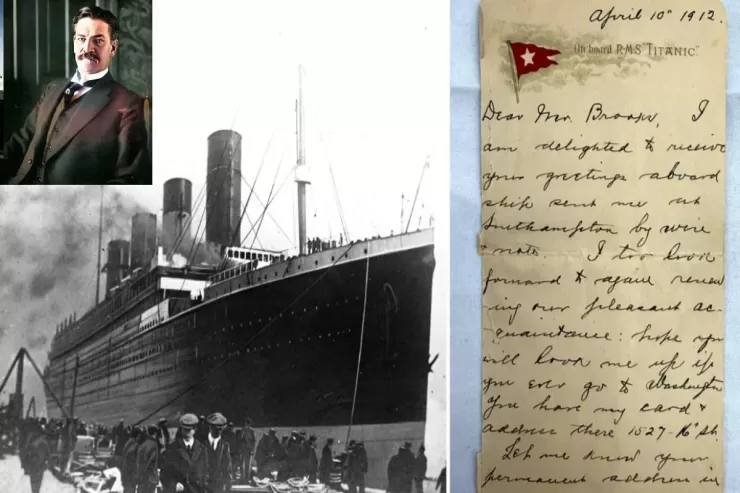 April 10th 1912.
On board R.M.S. "TITANIC".
Dear Mr. Brooks, I
am delighted to receive
your greetings aboard
ship sent me at
Southampton by wire
& note. I too look
forward to again renew
ing our pleasant ac-
quaintance: hope you
will look me up if
you ever go to Washington
You have my card &
address there 1527-16th St.
Let me know your
permanent address in